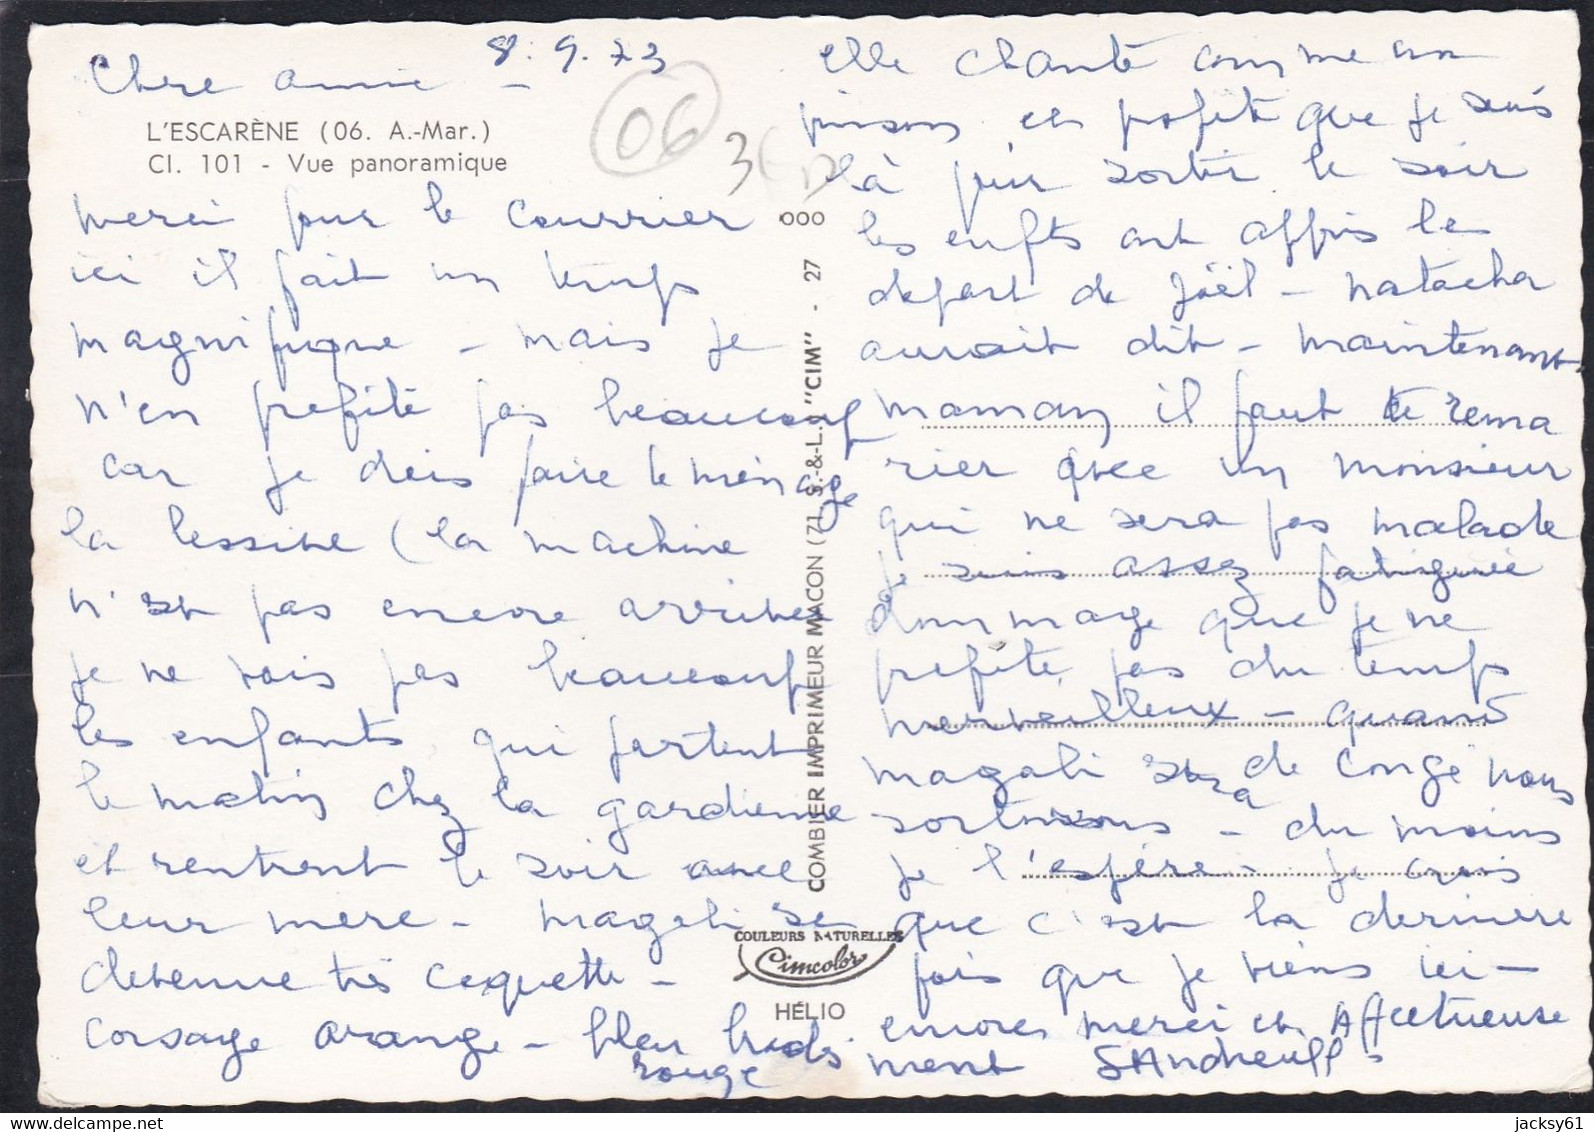 8.9.73
Chère annie -
L'ESCARÈNE (06. A.-Mar.)
Cl. 101 - Vue panoramique
06
merci pour le courrier
ici il fait un temps
magnifique - mais je
n'en profite pas beaucoup
car je dois faire le ménage
la lessive (la machine
n'est pas encore arrivée
je ne vois pas beaucoup
les enfants qui partent
le matin chez la gardienne
et rentrent le soir avec
leur mère - magali
devenue très coquette -
corsage orange - bleu
rouge
elle chante comme un
pinson et profite que je suis
là pour sortir le soir
les enfts ont appris le
depart de Joël - natacha
aurait dit - maintenant
maman il faut te rema
rier avec un monsieur
qui ne sera pas malade
je suis assez fatiguée
dommage que je ne
profite pas du temps
merveilleux - quand
magali sera de congé nous
sortirons - du moins
je l'espère - je crois
que c'est la dernière
fois que je viens ici -
encore merci et Affectueuse
ment
000
COMBIER IMPRIMEUR MACON (71 S.-&-L.) "CIM" - 27
COULEURS NATURELLES
Cimcolor
HÉLIO
jacksy61
www.delcampe.net